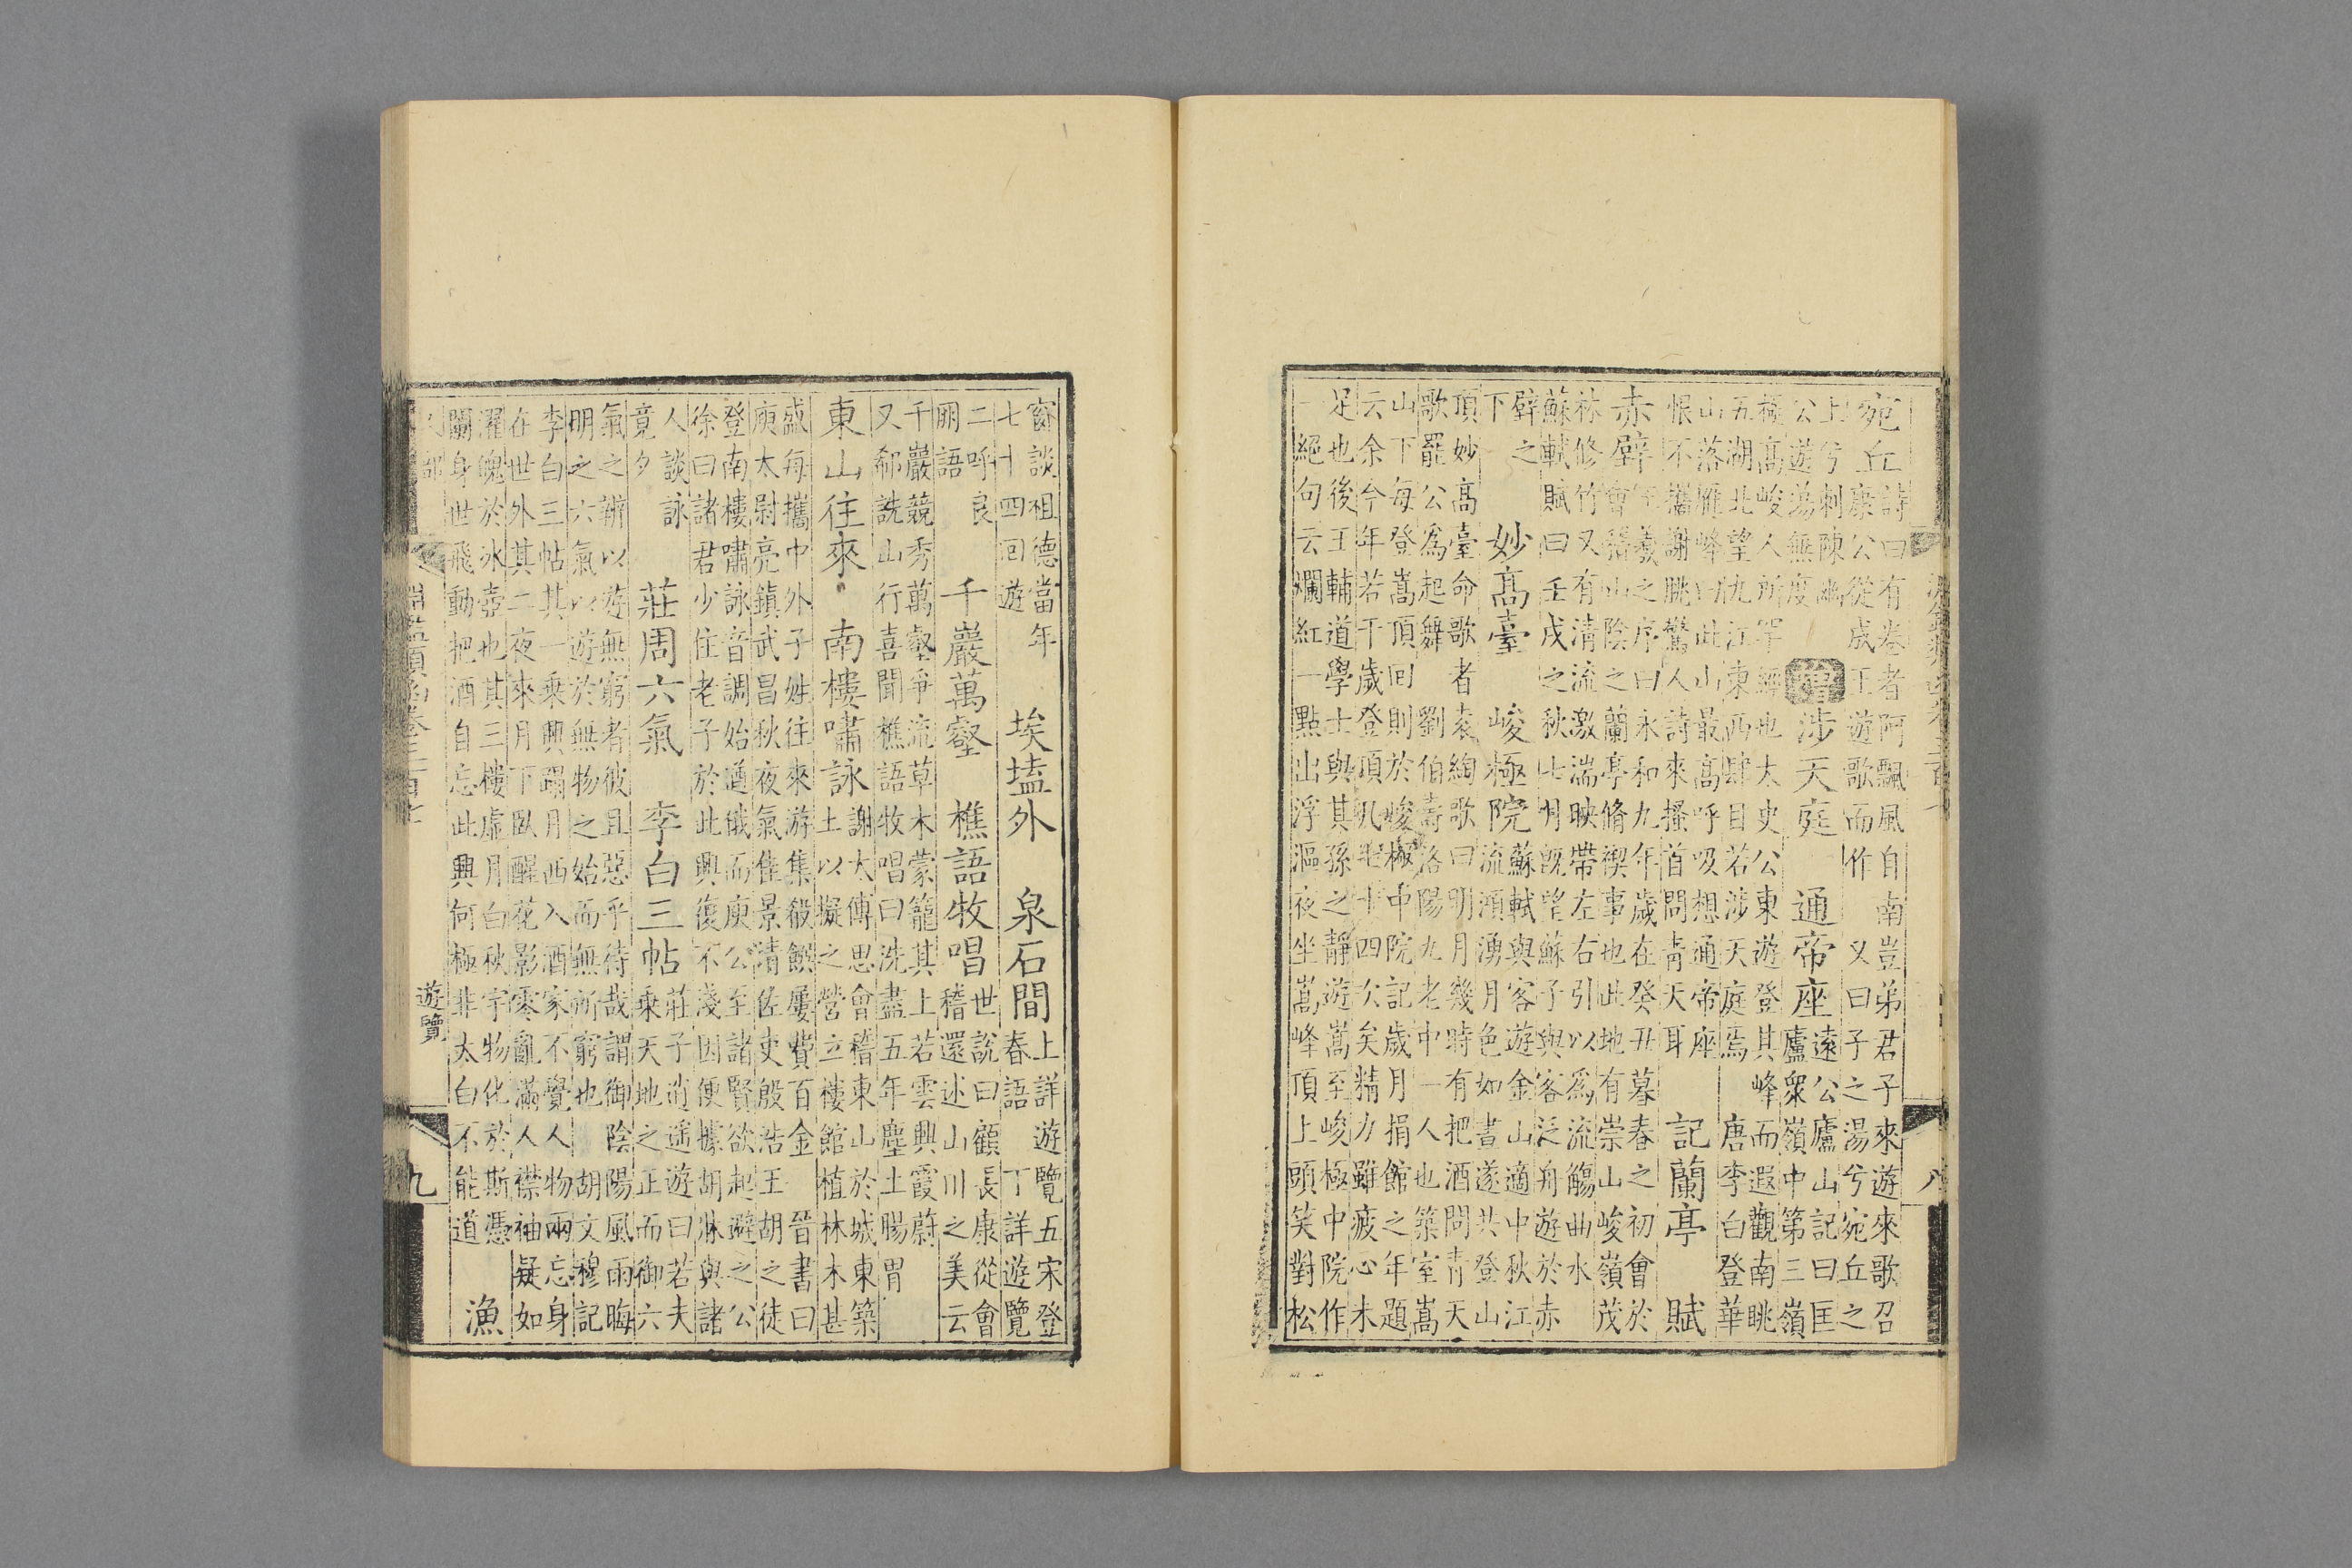 宛丘
詩曰有卷者阿飄風自南豈弟君子來遊來歌召
康公從成王遊歌而作 又曰子之湯兮宛丘之
上兮刺陳幽
公遊蕩無度
涉天庭 通帝座
遠公廬山記曰匡
廬衆嶺中第三嶺
極高峻人所罕經也太史公東遊登其峰而遐觀南眺
五湖北望九江東西肆目若涉天庭焉 唐李白登華
山落雁峰曰此山最高呼吸想通帝座
恨不攜謝眺驚人詩來搔首問靑天耳
記蘭亭 賦
赤壁
王羲之序曰永和九年歲在癸丑暮春之初會於
會稽山陰之蘭亭脩禊事也此地有崇山峻嶺茂
林修竹又有清流激湍映帶左右引以爲流觴曲水
蘇軾賦曰壬戌之秋七月旣望蘇子與客泛舟遊於赤
壁之
下
妙高臺 峻極院
蘇軾與客遊金山適中秋江
流澒湧月色如晝遂共登山
頂妙高臺命歌者袁綯歌曰明月幾時有把酒問靑天
歌罷公爲起舞 劉伯壽洛陽九老中一人也築室嵩
山下每登嵩頂回則於峻極中院記歲月捐館之年題
云余今年若干歲登頂凡七十四次矣精力雖疲心未
足也後王輔道學士與其孫之靜遊嵩至峻極中院作
一絕句云爛紅一點出浮漚夜坐嵩峰頂上頭笑對松
八
窗談祖德當年
七十四回遊
埃壒外 泉石間
上詳遊覽五宋登
春語 丁詳遊覽
二呼良
朋語
千巖萬壑 樵語牧唱
世說曰顧長康從會
稽還述山川之美云
千巖競秀萬壑爭流草木蒙籠其上若雲興霞蔚
又郗詵山行喜聞樵語牧唱曰洗盡五年塵土腸胃
東山往來 南樓嘯詠
謝太傅思會稽東山於城東築
土以擬之營立樓館植林木甚
盛每攜中外子姪往來游集殽饌屢費百金 晉書曰
庾太尉亮鎮武昌秋夜氣佳景清佐吏殷浩王胡之徒
登南樓嘯詠音調始遒俄而庾公至諸賢欲起避之公
徐曰諸君少住老子於此興復不淺因便據胡牀與諸
人談詠
竟夕
莊周六氣 李白三帖
莊子逍遙遊曰若夫
乘天地之正而御六
氣之辯以遊無窮者彼且惡乎待哉謂御陰陽風雨晦
明之六氣以遊於無物之始而無所窮也 胡文穆記
李白三帖其一乘興蹋月西入酒家不覺人物兩忘身
在世外其二夜來月下臥醒花影零亂滿人襟袖疑如
濯魄於冰壺也其三樓虛月白秋宇物化於斯憑
闌身世飛動把酒自忘此興何極非太白不能道
漁
人部
淵鑑類函卷三百七
遊覽
九